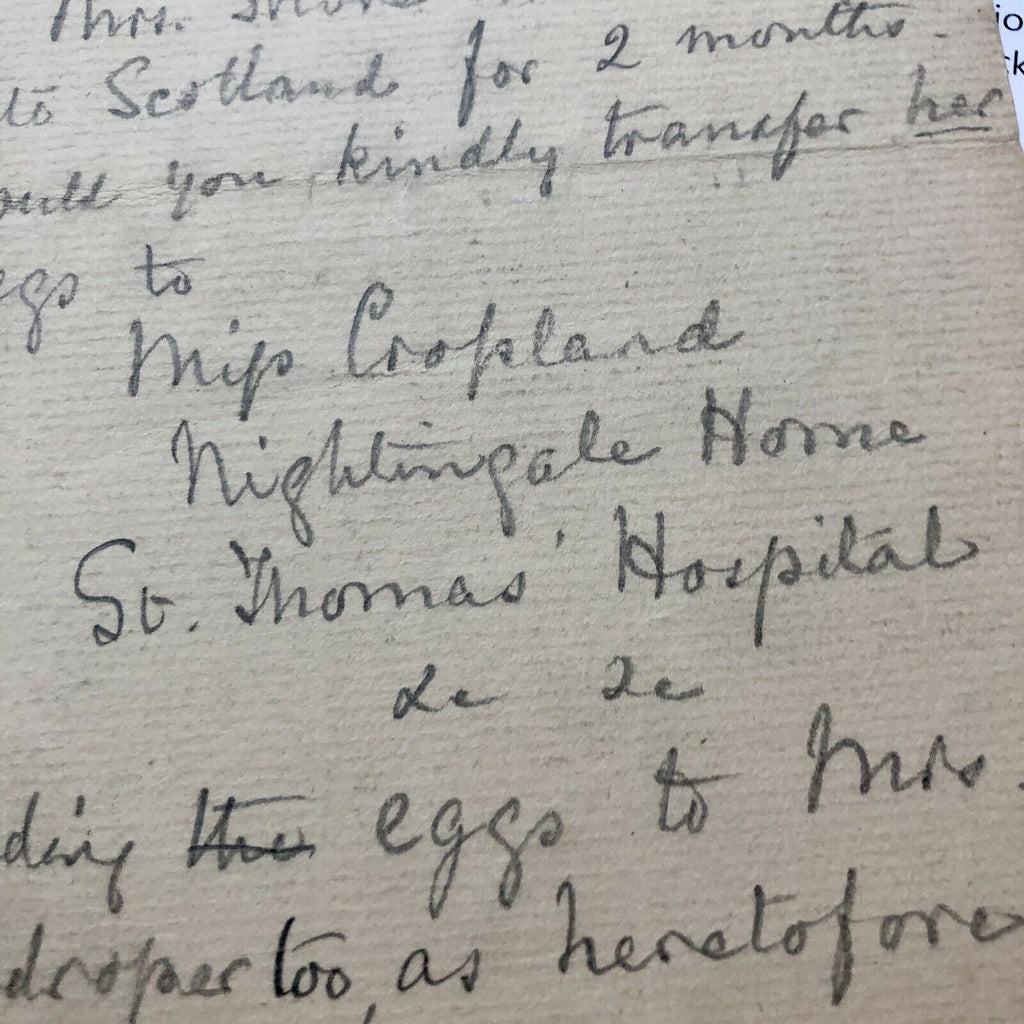 Mrs. Shore
to Scotland for 2 months.
ould you kindly transfer her
egs to
Miss Cropland
Nightingale Home
St. Thomas' Hospital
&c &c
ding the eggs to Mrs.
droper too, as heretofore
io
ck